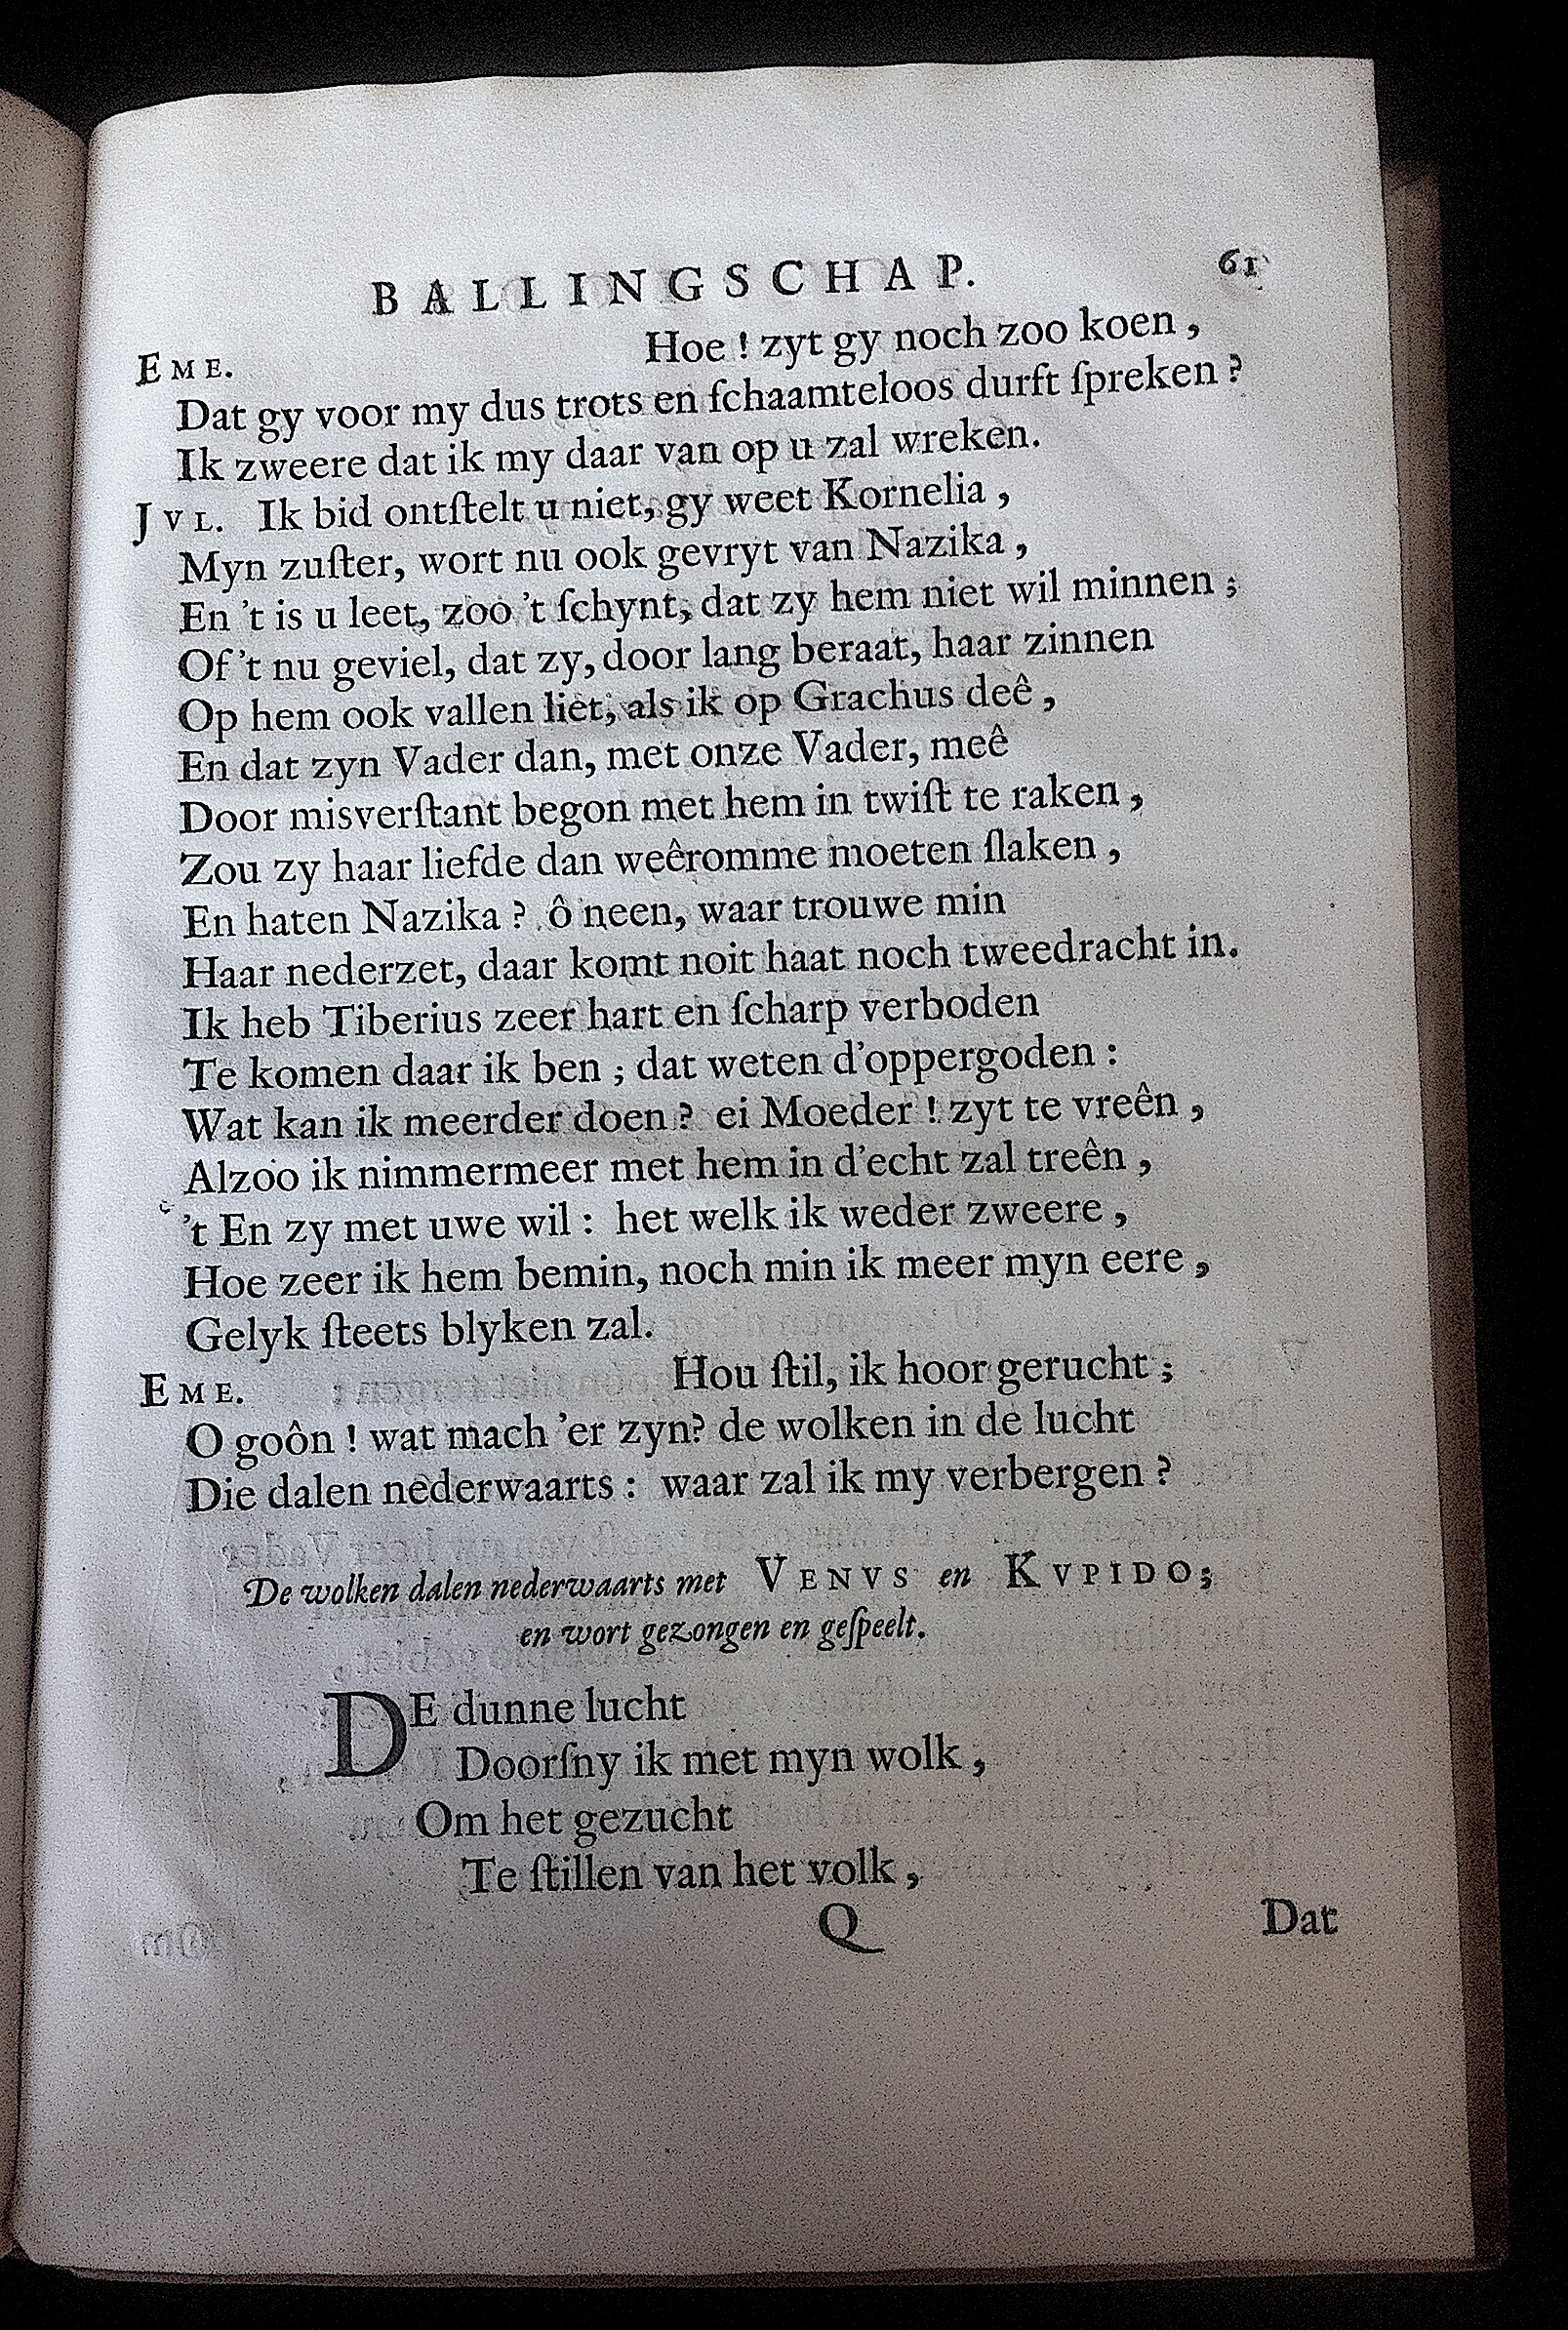 BALLINGSCHAP. 61
EME. Hoe ! zyt gy noch zoo koen ,
Dat gy voor my dus trots en ſchaamteloos durft ſpreken ?
Ik zweere dat ik my daar van op u zal wreken.
JVL. Ik bid ontſtelt u niet, gy weet Kornelia ,
Myn zuſter, wort nu ook gevryt van Nazika ,
En 't is u leet, zoo 't ſchynt, dat zy hem niet wil minnen ;
Of 't nu geviel, dat zy, door lang beraat, haar zinnen
Op hem ook vallen liet, als ik op Grachus deê ,
En dat zyn Vader dan, met onze Vader, meê
Door misverſtant begon met hem in twiſt te raken ,
Zou zy haar liefde dan weêromme moeten ſlaken ,
En haten Nazika ? ô neen, waar trouwe min
Haar nederzet, daar komt noit haat noch tweedracht in.
Ik heb Tiberius zeer hart en ſcharp verboden
Te komen daar ik ben ; dat weten d'oppergoden :
Wat kan ik meerder doen ? ei Moeder ! zyt te vreên ,
Alzoo ik nimmermeer met hem in d'echt zal treên ,
't En zy met uwe wil : het welk ik weder zweere ,
Hoe zeer ik hem bemin, noch min ik meer myn eere ,
Gelyk ſteets blyken zal.
EME. Hou ſtil, ik hoor gerucht ;
O goôn ! wat mach 'er zyn? de wolken in de lucht
Die dalen nederwaarts : waar zal ik my verbergen ?
De wolken dalen nederwaarts met VENVS en KVPIDO;
en wort gezongen en geſpeelt.
DE dunne lucht
Doorſny ik met myn wolk ,
Om het gezucht
Te ſtillen van het volk ,
Q Dat